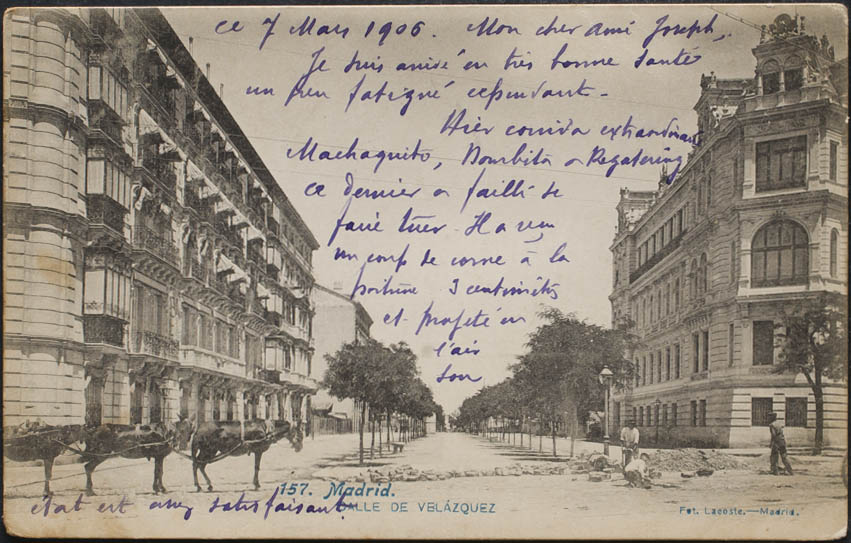 ce 7 Mars 1906. Mon cher ami Joseph,
Je suis arrivé en très bonne santé
un peu fatigué cependant -
Hier corrida extraordinaire
Machaquito, Bombita
ce dernier a failli se
faire tuer. Il a reçu
un coup de corne à la
poitrine 3 centimètres
et projeté en
l'air
son
état est assez satisfaisant.
157. Madrid.
CALLE DE VELÁZQUEZ
Fot. Lacoste.—Madrid.